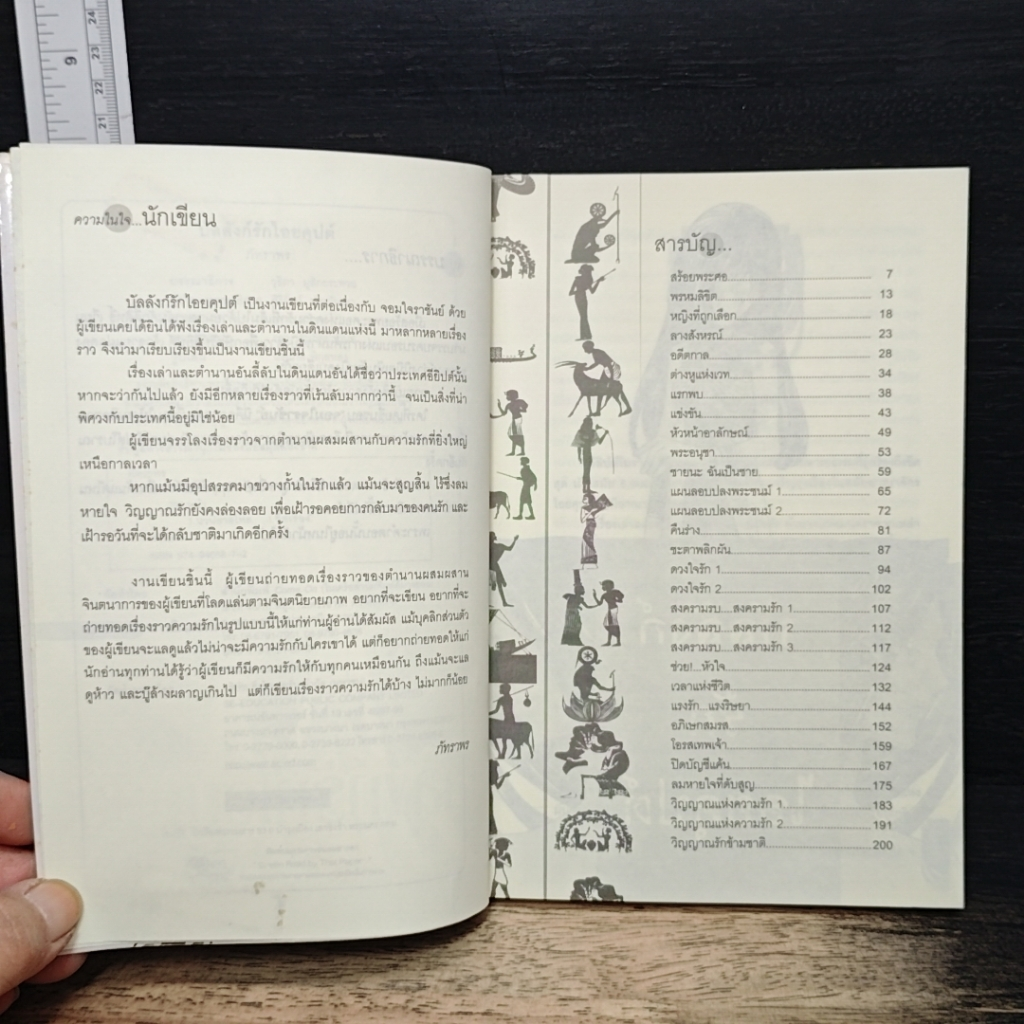 9
24
23
22
21
ความในใจ...นักเขียน
บัลลังก์รักไอยคุปต์ เป็นงานเขียนที่ต่อเนื่องกับ จอมใจราชันย์ ด้วย
ผู้เขียนเคยได้ยินได้ฟังเรื่องเล่าและตำนานในดินแดนแห่งนี้ มาหลากหลายเรื่อง
ราว จึงนำมาเรียบเรียงขึ้นเป็นงานเขียนชิ้นนี้
เรื่องเล่าและตำนานอันลี้ลับในดินแดนอันได้ชื่อว่าประเทศอียิปต์นั้น
หากจะว่ากันไปแล้ว ยังมีอีกหลายเรื่องราวที่เร้นลับมากกว่านี้ จนเป็นสิ่งที่น่า
พิศวงกับประเทศนี้อยู่มิใช่น้อย
ผู้เขียนจรรโลงเรื่องราวจากตำนานผสมผสานกับความรักที่ยิ่งใหญ่
เหนือกาลเวลา
หากแม้นมีอุปสรรคมาขวางกั้นในรักแล้ว แม้นจะสูญสิ้น ไร้ซึ่งลม
หายใจ วิญญาณรักยังคงล่องลอย เพื่อเฝ้ารอคอยการกลับมาของคนรัก และ
เฝ้ารอวันที่จะได้กลับชาติมาเกิดอีกครั้ง
งานเขียนชิ้นนี้ ผู้เขียนถ่ายทอดเรื่องราวของตำนานผสมผสาน
จินตนาการของผู้เขียนที่โลดแล่นตามจินตนิยายภาพ อยากที่จะเขียน อยากที่จะ
ถ่ายทอดเรื่องราวความรักในรูปแบบนี้ให้แก่ท่านผู้อ่านได้สัมผัส แม้บุคลิกส่วนตัว
ของผู้เขียนจะแลดูแล้วไม่น่าจะมีความรักกับใครเขาได้ แต่ก็อยากถ่ายทอดให้แก่
นักอ่านทุกท่านได้รู้ว่าผู้เขียนก็มีความรักให้กับทุกคนเหมือนกัน ถึงแม้นจะแล
ดูห้าว และบู๊ล้างผลาญเกินไป แต่ก็เขียนเรื่องราวความรักได้บ้าง ไม่มากก็น้อย
ภัทราพร
สารบัญ...
สร้อยพระศอ 7
พรหมลิขิต 13
หญิงที่ถูกเลือก 18
ลางสังหรณ์ 23
อดีตกาล 28
ต่างหูแห่งเวท 34
แรกพบ 38
แข่งขัน 43
หัวหน้าอาลักษณ์ 49
พระอนุชา 53
ชายนะ ฉันเป็นชาย 59
แผนลอบปลงพระชนม์ 1 65
แผนลอบปลงพระชนม์ 2 72
คืนร่าง 81
ชะตาพลิกผัน 87
ดวงใจรัก 1 94
ดวงใจรัก 2 102
สงครามรบ....สงครามรัก 1 107
สงครามรบ....สงครามรัก 2 112
สงครามรบ....สงครามรัก 3 117
ช่วย!...หัวใจ 124
เวลาแห่งชีวิต 132
แรงรัก...แรงริษยา 144
อภิเษกสมรส 152
โอรสเทพเจ้า 159
ปิดบัญชีแค้น 167
ลมหายใจที่ดับสูญ 175
วิญญาณแห่งความรัก 1 183
วิญญาณแห่งความรัก 2 191
วิญญาณรักข้ามชาติ 200